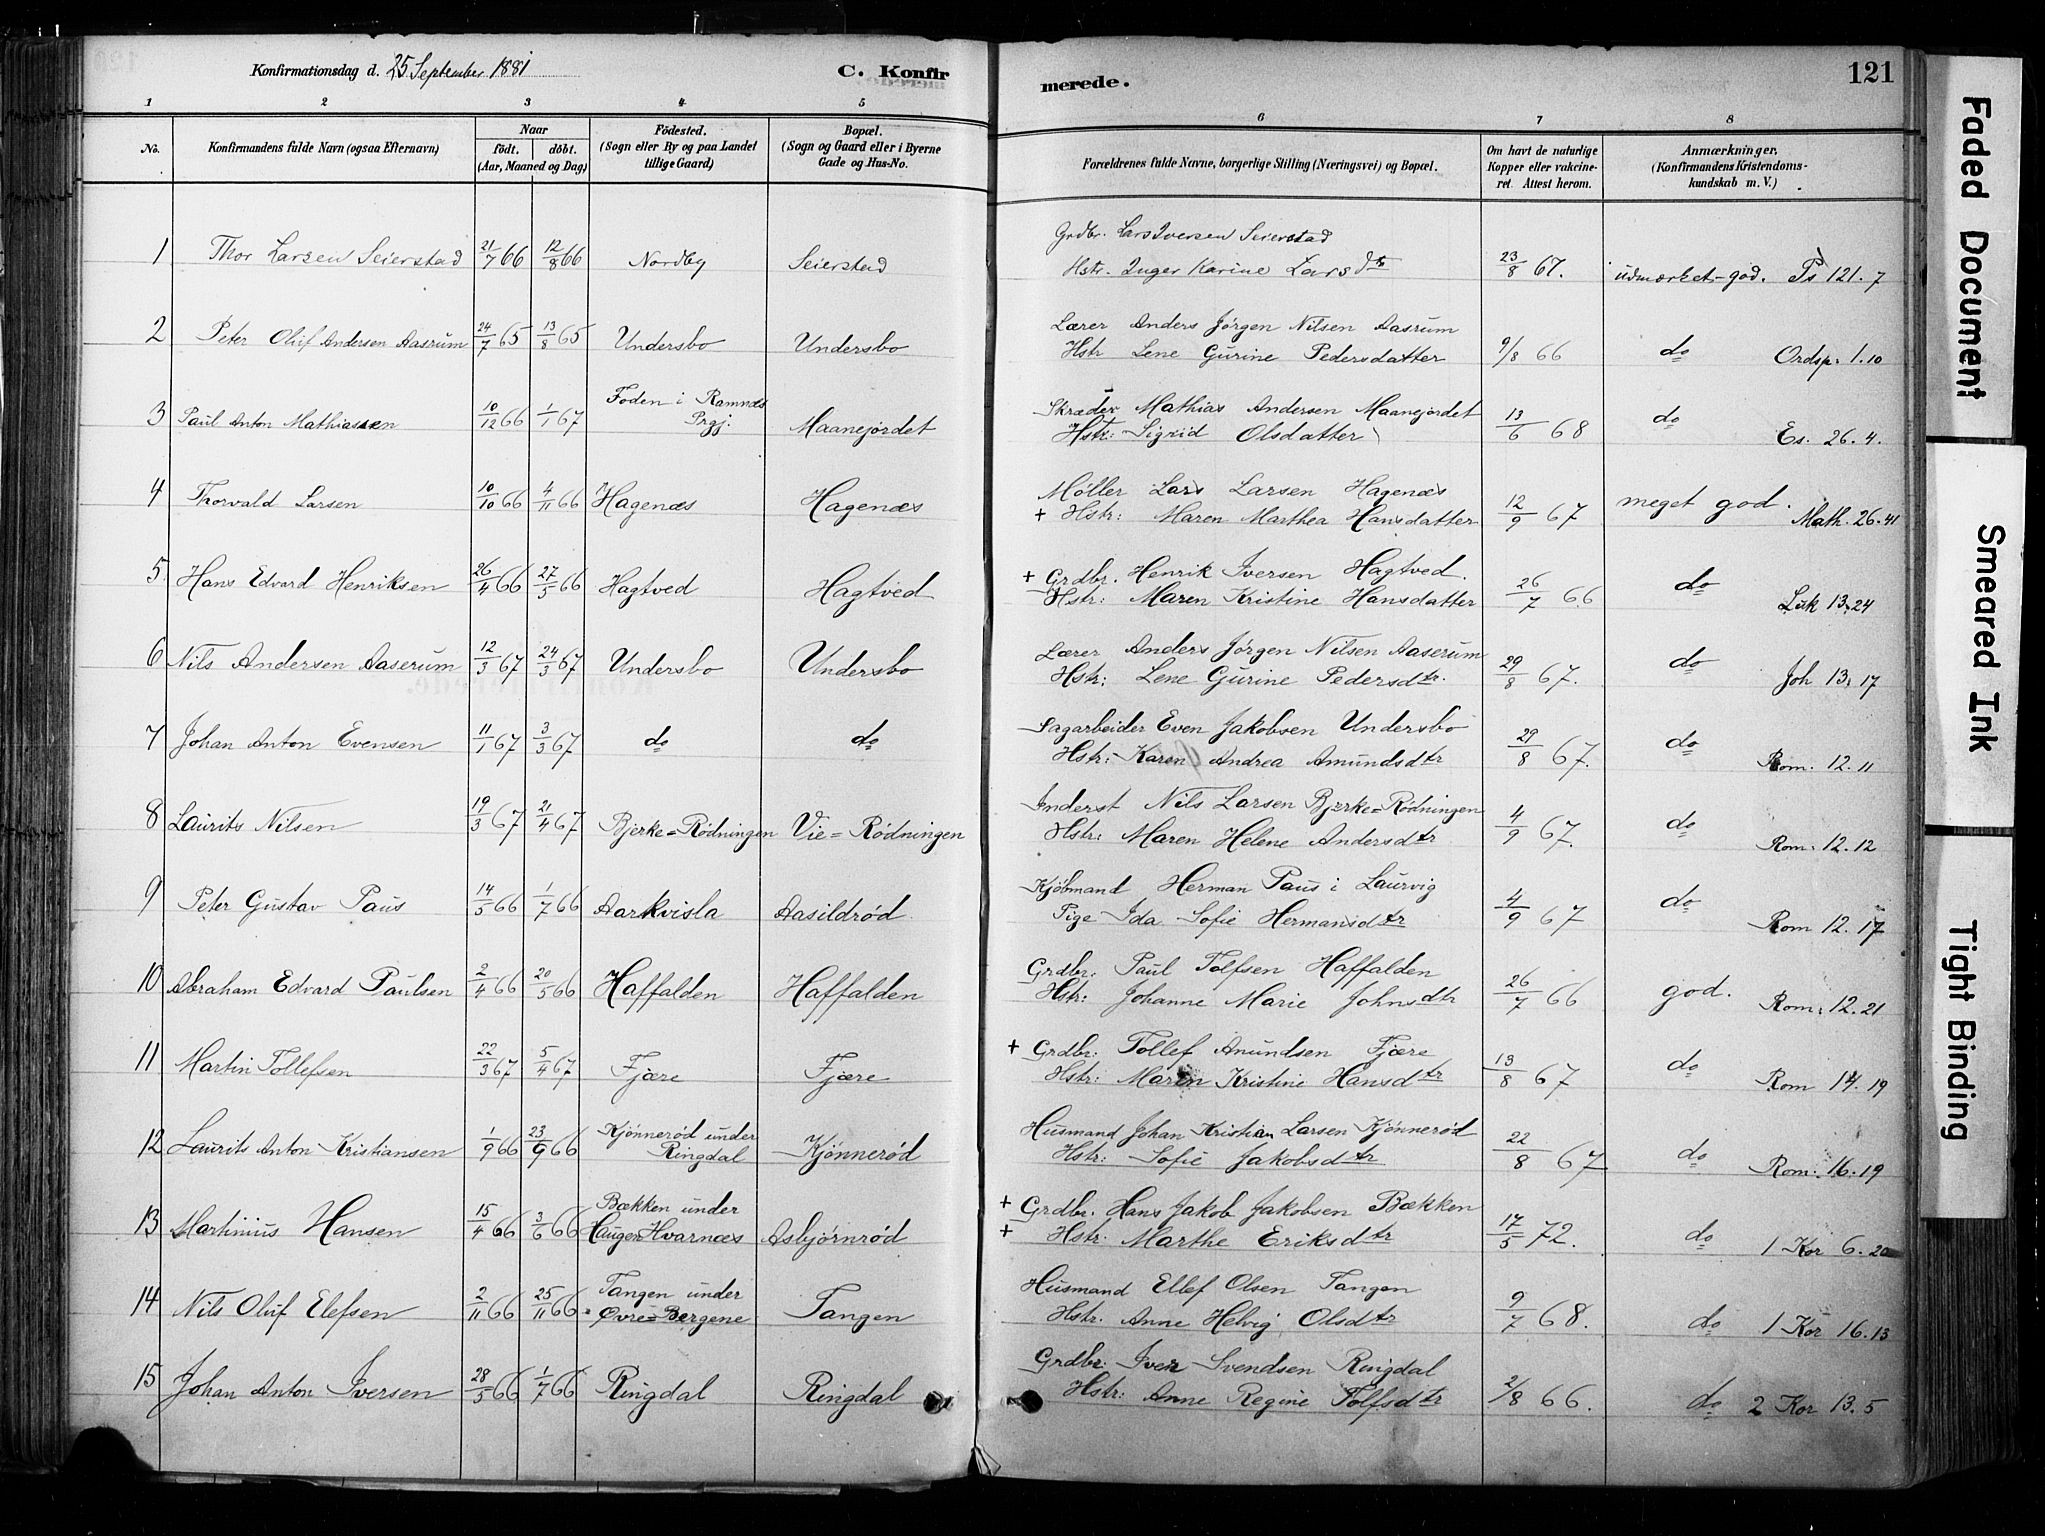 Konfirmationsdag d. 25 September 1881 C. Konfirmerede. 121
1 2 3 4 5 6 7 8
No. Konfirmandens fulde Navn (ogsaa Efternavn) Naar født. døbt. (Aar, Maaned og Dag) Fødested. (Sogn eller By og paa Landet tillige Gaard) Bopæl. (Sogn og Gaard eller i Byerne Gade og Hus-No. Forældrenes fulde Navne, borgerlige Stilling (Næringsvei) og Bopæl. Om havt de naturlige Kopper eller vakcineret. Attest herom. Anmærkninger, (Konfirmandens Kristendomskundskab m. V.)
Grdbr. Lars Iversen Seierstad
1 Thor Larsen Seierstad 21/7 66 12/8 66 Nordby Seierstad Hstr. Inger Karine Larsdtr 23/8 67. udmærket-god. Ps 121.7
Lærer Anders Jørgen Nilsen Aasrum
2 Peter Oluf Andersen Aasrum 24/7 65 13/8 65 Undersbo Undersbo Hstr Lene Gurine Pedersdatter 9/8 66 do Ordsp. 1.10
Foden i Ramnæs Skræder Mathias Andersen Maanejordet
3 Paul Anton Mathiassen 10/12 66 1/1 67 Prgj. Maanejordet Hstr: Sigrid Olsdatter 13/6 68 do Es. 26.4.
Møller Lars Larsen Hagenæs
4 Thorvald Larsen 10/10 66 4/11 66 Hagenæs Hagenæs + Hstr: Maren Marthea Hansdatter 12/9 67 meget god. Math. 26.41
+ Grdbr. Henrik Iversen Hagtved.
5 Hans Edvard Henriksen 26/4 66 27/5 66 Hagtved Hagtved Hstr: Maren Kristine Hansdatter 26/7 66 do Luk 13.24
Lærer Anders Jørgen Nilsen Aaserum
6 Nils Andersen Aaserum 12/3 67 24/3 67 Undersbo Undersbo Hstr: Lene Gurine Pedersdtr. 29/8 67. do Joh 13.17
Sagarbeider Even Jakobsen Undersbo
7 Johan Anton Evensen 11/1 67 3/3 67 do do Hstr: Karen Andrea Amundsdtr 29/8 67. do Rom. 12.11
Inderst Nils Larsen Bjerke=Rødningen
8 Laurits Nilsen 19/3 67 21/4 67 Bjerke=Rødningen Vie=Rødningen Hstr: Maren Helene Andersdtr 4/9 67. do Rom. 12.12
Kjøbmand Herman Paus i Laurvig
9 Peter Gustav Paus 14/5 66 1/7 66 Aarkvisla Aasildrød Pige Ida Sofie Hermansdtr 4/9 67 do Rom 12.17
Grdbr. Paul Tolfsen Haffalden
10 Abraham Edvard Paulsen 2/4 66 20/5 66 Haffalden Haffalden Hstr: Johanne Marie Johnsdtr 26/7 66 god. Rom. 12.21
+ Grdbr: Tollef Anundsen Fjære
11 Martin Tollefsen 22/3 67 5/4 67 Fjære Fjære Hstr: Maren Kristine Hansdtr 13/8 67 do Rom 14.19
Kjønnerød under Husmand Johan Kristian Larsen Kjønnerød
12 Laurits Anton Kristiansen 1/9 66 23/9 66 Ringdal Kjønnerød Hstr: Sofie Jakobsdtr 22/8 67 do Rom. 16.19
Bækken under + Grdbr. Hans Jakob Jakobsen Bækken
13 Martinius Hansen 15/4 66 3/6 66 Haugen Hvarnæs Asbjørnrød + Hstr. Marthe Eriksdtr 17/5 72. do 1 Kor 6.20
Tangen under Husmand Ellef Olsen Tangen
14 Nils Oluf Elefsen 2/11 66 25/11 66 Øvre=Bergene Tangen Hstr. Anne Helvig Olsdtr 9/7 68. do 1 Kor 16.13
Grdbr: Iver Svendsen Ringdal
15 Johan Anton Iversen 28/5 66 1/7 66 Ringdal Ringdal Hstr: Anne Regine Tolfsdtr 2/8 66. do 2 Kor 13.5
Faded Document
Smeared Ink
Tight Binding